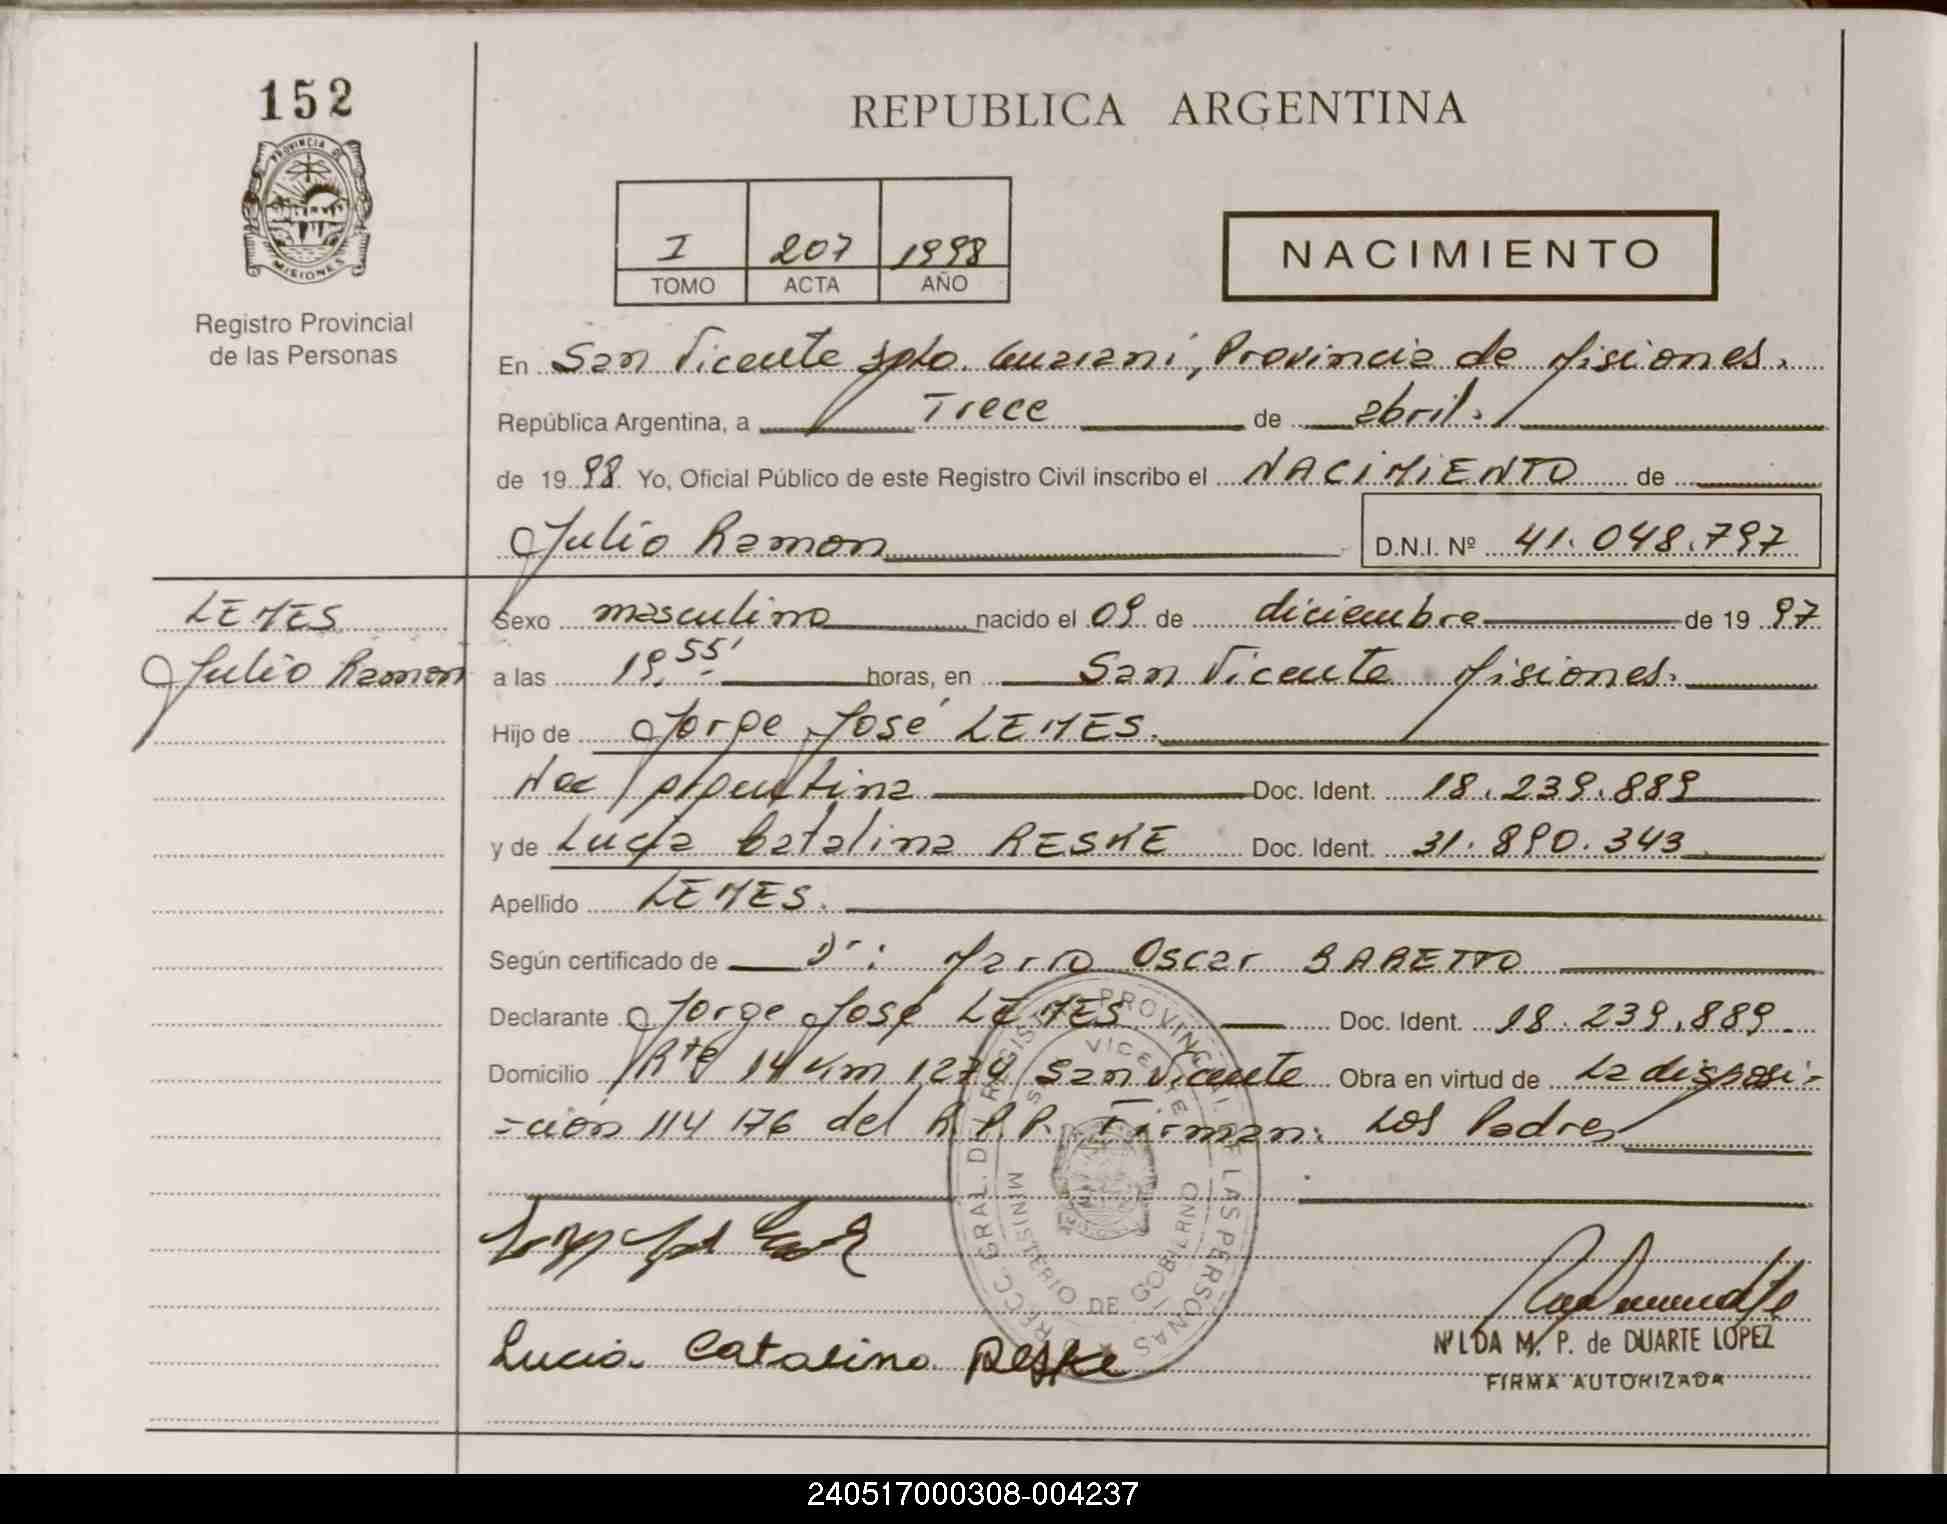 152
PROVINCIA DE
MISIONES
Registro Provincial
de las Personas
REPUBLICA ARGENTINA
I 207 1998
TOMO ACTA AÑO
NACIMIENTO
En San Vicente Dpto. Guarani, Provincia de Misiones.
República Argentina, a Trece de abril.
de 1998. Yo, Oficial Público de este Registro Civil inscribo el NACIMIENTO de
Julio Ramon D.N.I. Nº 41.048.797
LEMES
Julio Ramon
Sexo masculino nacido el 09 de diciembre de 1997
a las 19.55' horas, en San Vicente Misiones.
Hijo de Jorge José LEMES.
Nac Argentina Doc. Ident. 18.239.889
y de Lucia Catalina RESKE Doc. Ident. 31.890.343
Apellido LEMES.
Según certificado de Dr: Mario Oscar BARETTO
Declarante Jorge José LEMES Doc. Ident. 18.239.889.
Domicilio Rta 14 Km 1.279 San Vicente Obra en virtud de La disposi-
-ción 114/76 del R.P.P. Firman: Los Padres
DIRECC. GRAL. DEL REGIST. PROVINCIAL DE LAS PERSONAS
VICENTE
MINISTERIO DE GOBIERNO
Lucia Catalina Reske
NILDA M. P. de DUARTE LOPEZ
FIRMA AUTORIZADA
240517000308-004237